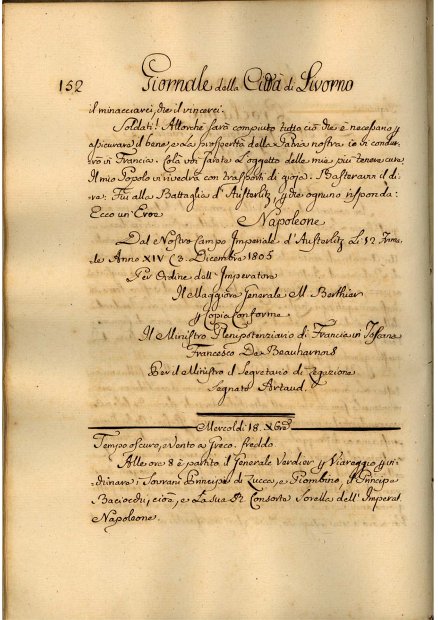 152 Giornale della Città di Livorno
il minacciarci, die il vincerci.
Soldati! Allorchè sarà compiuto tutto ciò che è necessario p
assicurare il bene, e la prosperità della Patria nostra io vi condur
rò in Francia. Colà voi sarete l'oggetto delle mie più tenere cure.
Il mio Popolo vi rivedrà con trasporti di gioja. Basteravvi il di
ra: Fui alla Battaglia d'Austerlitz, p che ognuno risponda:
Ecco un Eroe
Napoleone
Dal Nostro Campo Imperiale d'Austerlitz li 12 Frima
le Anno XIV (3. Dicembre 1805
Per Ordine dell'Imperatore
Il Maggiore Generale M. Berthier
p Copia Conforme
Il Ministro Plenipotenziario di Francia in Toscana
Francesco De Beauharnois
Per il Ministro il Segretario di Legazione
Segnato Artaud.
Mercoldì 18. Xbre
Tempo oscuro, a vento a Greco. freddo.
Alle ore 8 è partito il Generale Verdier p Viareggio p in
chinare i Sovrani Principi di Lucca, e Piombino, il Principe
Baciocchi, cioè, e la sua Consorte Sorella dell'Imperat.
Napoleone.